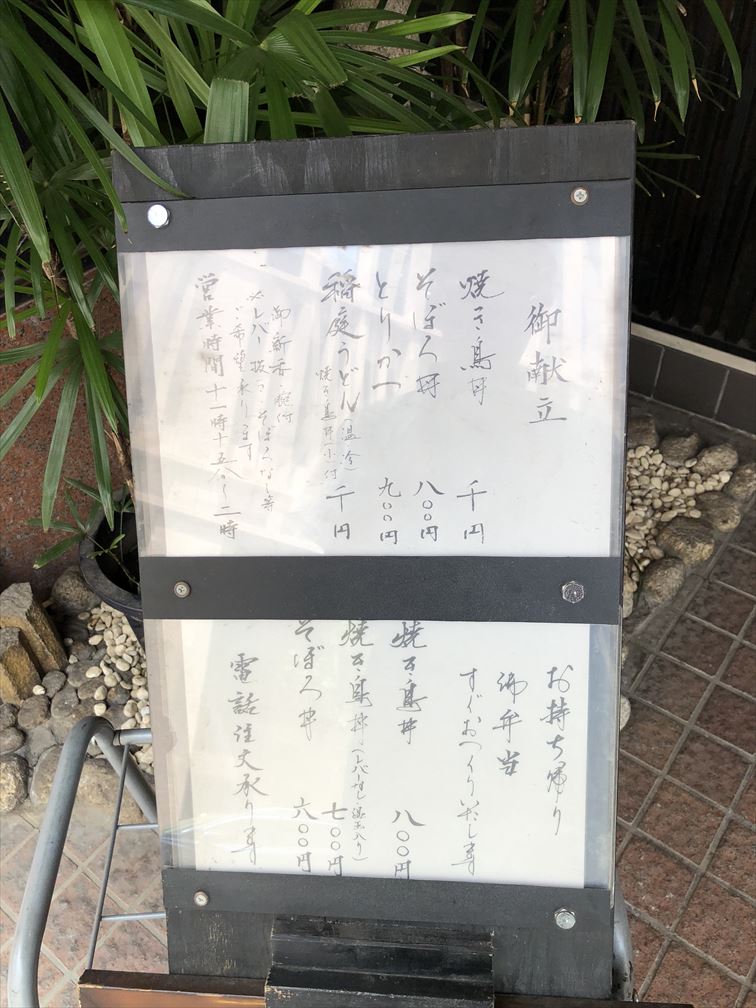 御献立
焼き鳥丼 千円
そぼろ丼 八〇〇円
とりかつ 九〇〇円
稲庭うどん(温冷) 千円
焼き鳥丼(小)付
御新香・椀付
※レバー抜き・そぼろなし等
ご希望承ります
営業時間 十一時十五分〜二時
お持ち帰り
御弁当
すぐおつくり致し升
焼き鳥丼 八〇〇円
焼き鳥丼(レバー無し・温玉入り) 七〇〇円
そぼろ丼 六〇〇円
電話注文承り升